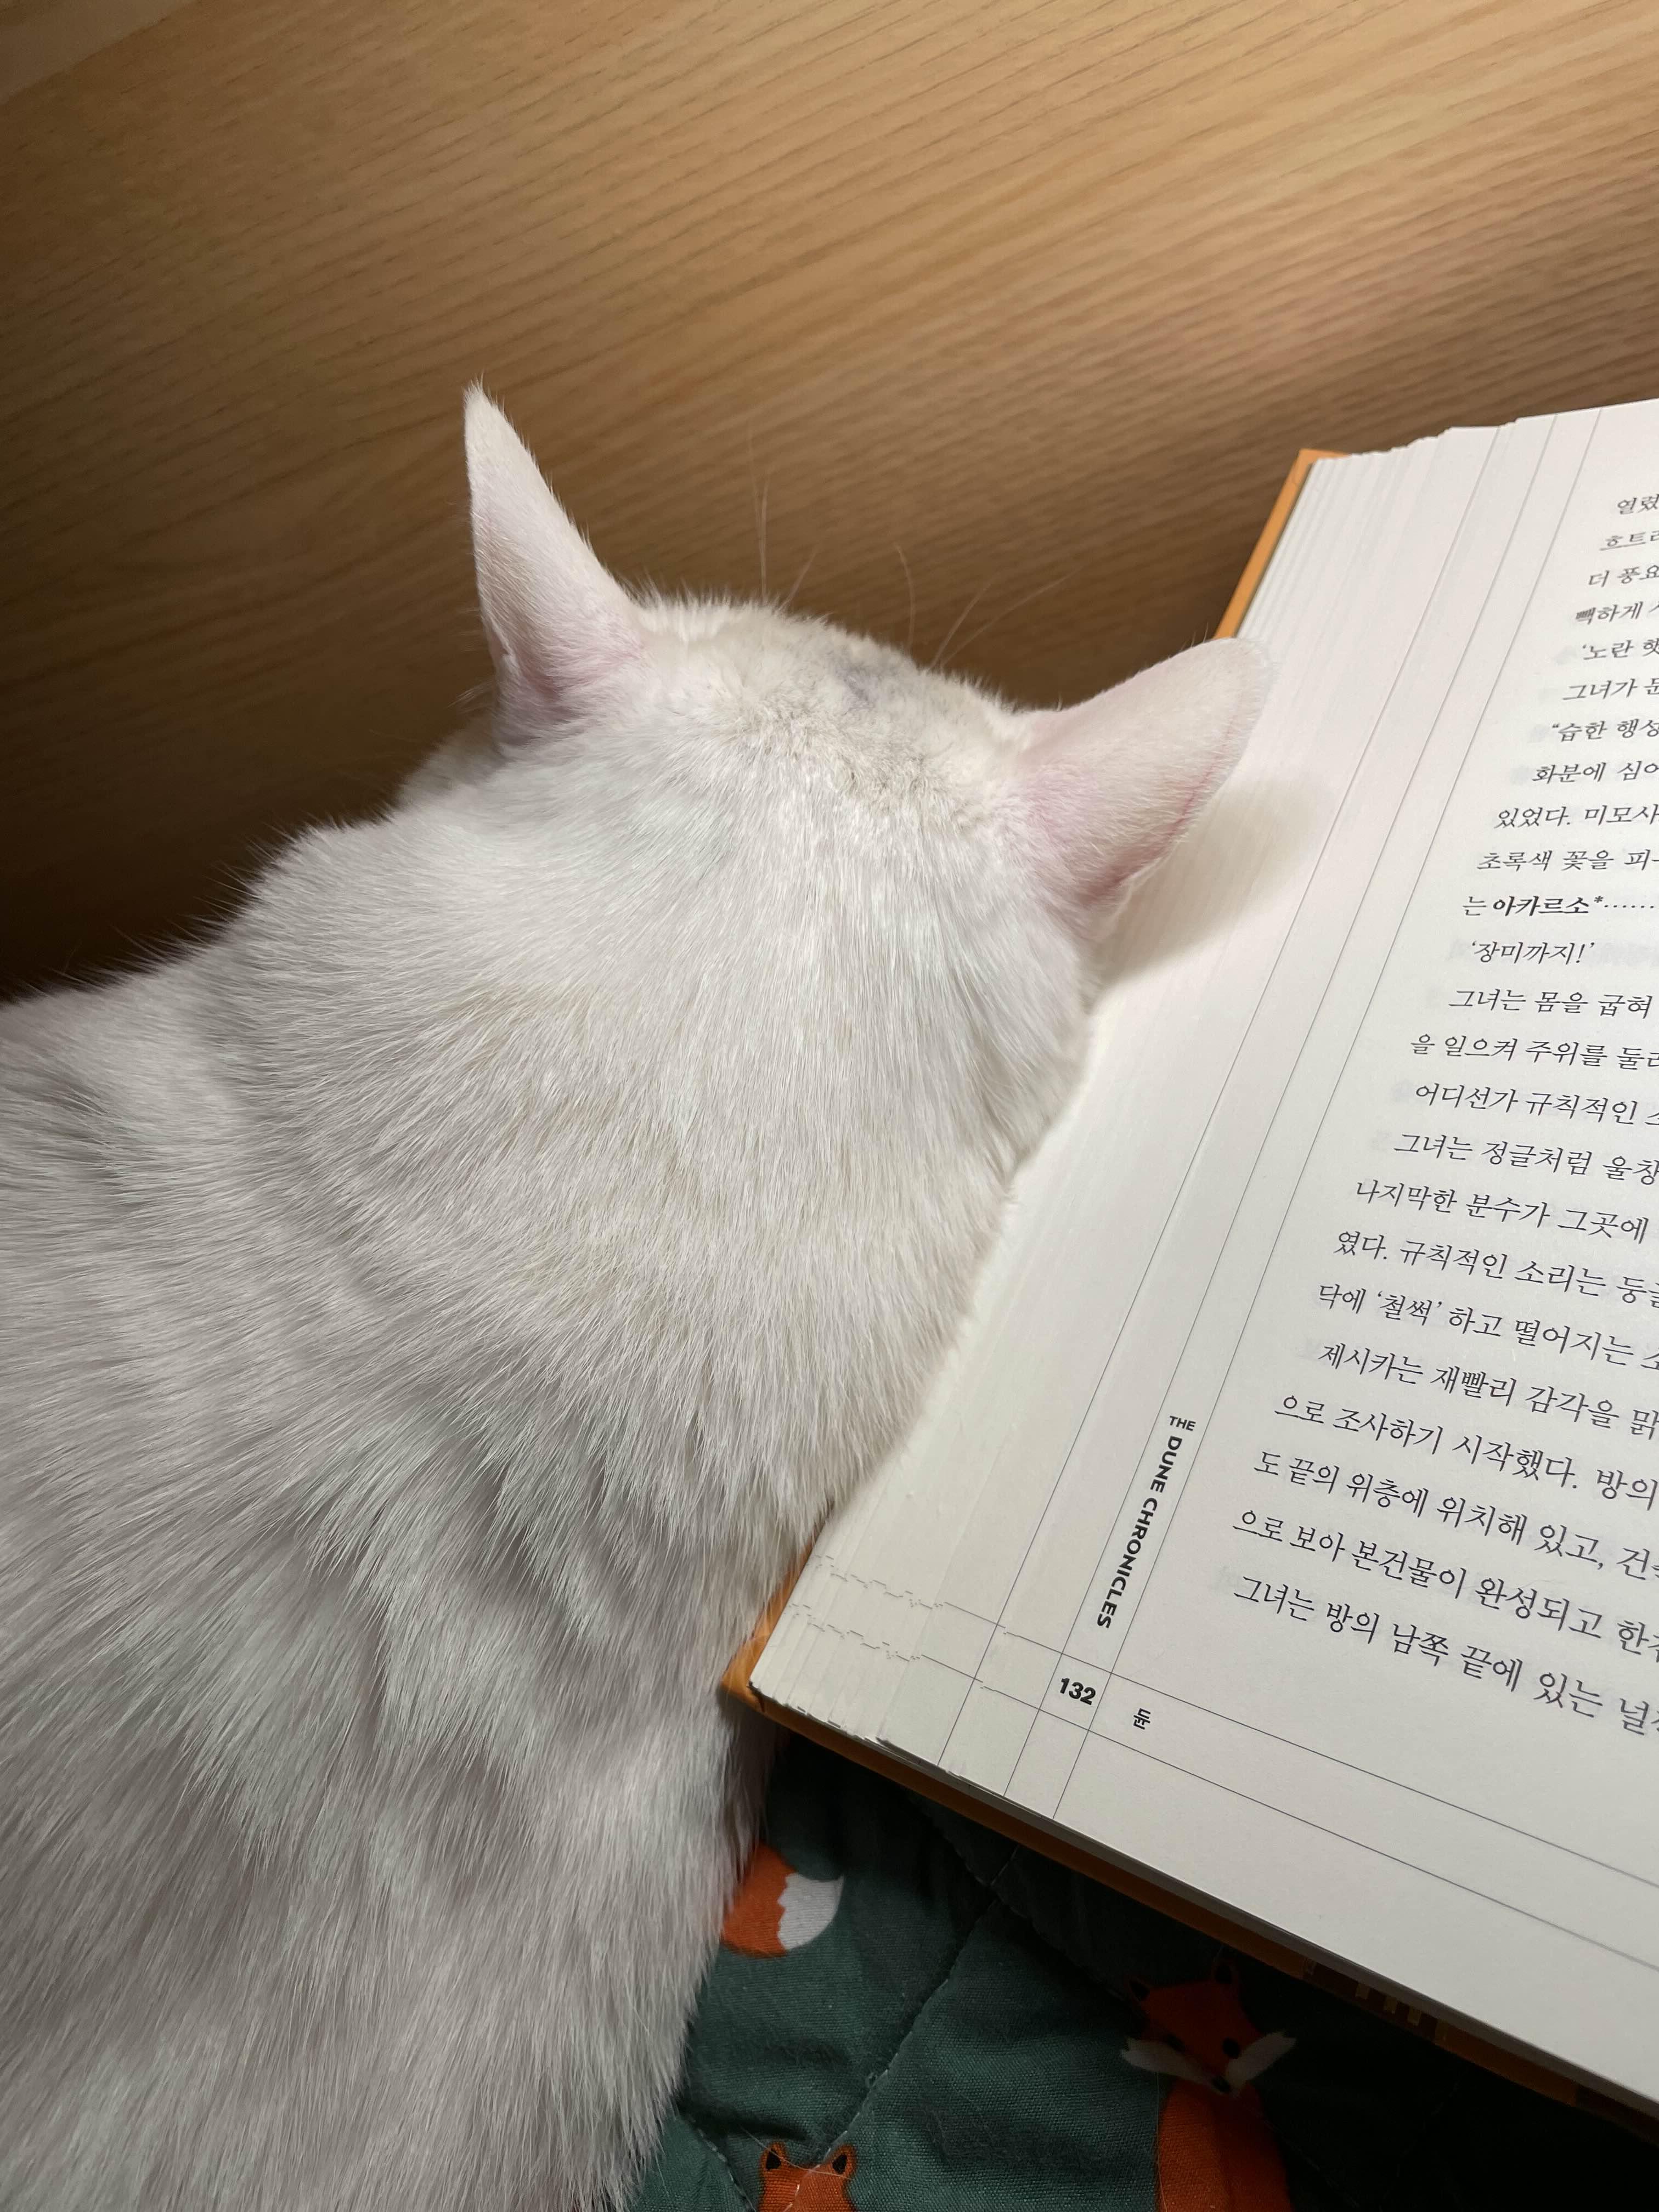 더
빽하게
‘노란
그녀가
“습한
화분에
있었다. 미모사
초록색 꽃을
는 아카르소*……
‘장미까지!’
그녀는 몸을 굽혀
을 일으켜 주위를
어디선가 규칙적인
그녀는 정글처럼
나지막한 분수가 그곳에
였다. 규칙적인 소리는
닥에 ‘철썩’ 하고 떨어지는
제시카는 재빨리 감각을
으로 조사하기 시작했다. 방의
도 끝의 위층에 위치해 있고,
으로 보아 본건물이 완성되고
그녀는 방의 남쪽 끝에 있는
THE DUNE CHRONICLES
132 듄